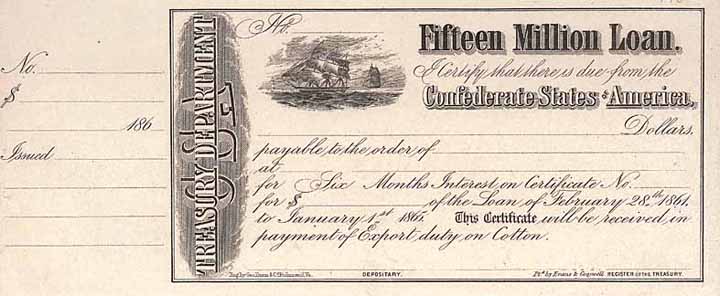 No.
$
186
Issued
TREASURY DEPARTMENT
No.
Fifteen Million Loan.
I Certify that there is due from the
Confederate States of America,
Dollars.
payable to the order of
at
for Six Months Interest on Certificate No.
for $ of the Loan of February 28.th 1861.
to January 1.st This Certificate will be received in
payment of Export duty on Cotton.
Eng. by Geo. Dunn & Co. Richmond, Va.
DEPOSITARY.
Ptd. by Evans & Cogwell
REGISTER OF THE TREASURY.